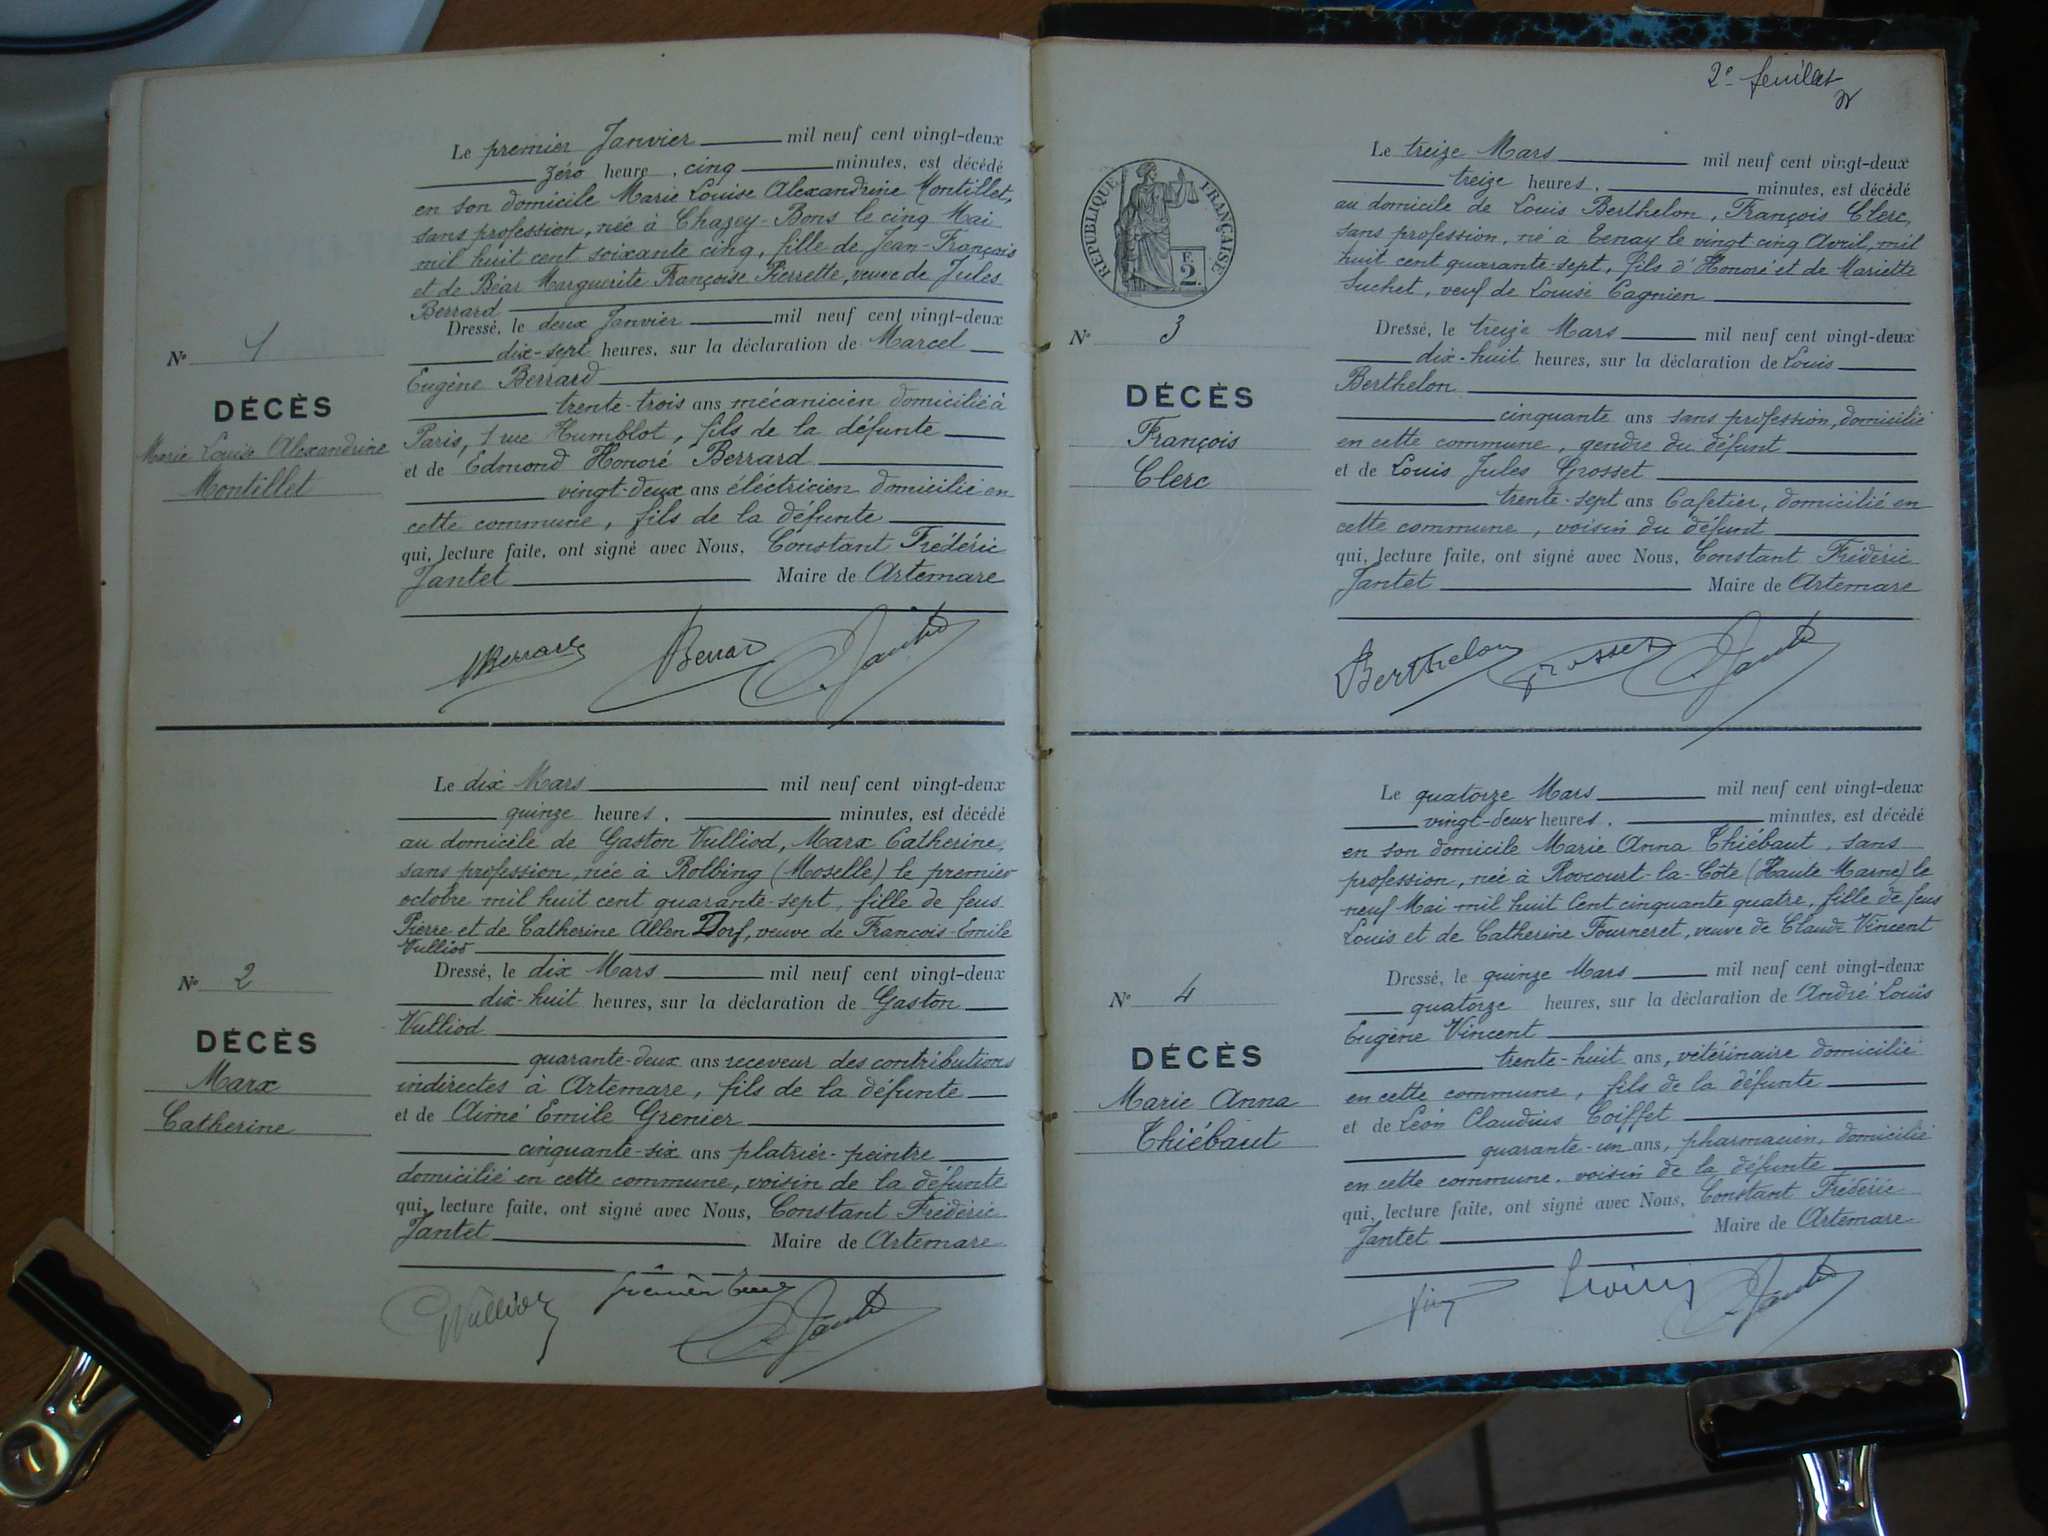 Le premier Janvier mil neuf cent vingt-deux
zéro heure, cinq minutes, est décédé
en son domicile Marie Louise Alexandrine Montillet,
sans profession, née à Chazey-Bons le cinq Mai
mil huit cent soixante cinq, fille de Jean-François
et de Béar Marguerite Françoise Pierrette, veuve de Jules
Berrard
Dressé, le deux Janvier mil neuf cent vingt-deux
dix-sept heures, sur la déclaration de Marcel
Eugène Berrard
trente-trois ans mécanicien domicilié à
Paris, 1 rue Humblot, fils de la défunte
et de Edmond Honoré Berrard
vingt-deux ans électricien domicilié en
cette commune, fils de la défunte
qui, lecture faite, ont signé avec Nous, Constant Frédéric
Jantet Maire de Artemare
N° 1
DÉCÈS
Marie Louise Alexandrine
Montillet
Berrard
Le dix Mars mil neuf cent vingt-deux
quinze heures, minutes, est décédé
au domicile de Gaston Vulliod, Marx Catherine,
sans profession, née à Rolbing (Moselle) le premier
octobre mil huit cent quarante-sept, fille de feus
Pierre et de Catherine Allen Dorf, veuve de François-Emile
Vulliod
Dressé, le dix Mars mil neuf cent vingt-deux
dix-huit heures, sur la déclaration de Gaston
Vulliod
quarante-deux ans receveur des contributions
indirectes à Artemare, fils de la défunte
et de Aimé Emile Grenier
cinquante-six ans platrier-peintre
domicilié en cette commune, voisin de la défunte
qui, lecture faite, ont signé avec Nous, Constant Frédéric
Jantet Maire de Artemare
N° 2
DÉCÈS
Marx
Catherine
2e feuillet
RÉPUBLIQUE FRANÇAISE
F.
2.
Le treize Mars mil neuf cent vingt-deux
treize heures, minutes, est décédé
au domicile de Louis Berthelon, François Clerc,
sans profession, né à Tenay le vingt cinq Avril, mil
huit cent quarante-sept, fils d'Honoré et de Mariette
Suchet, veuf de Louise Cagnien
Dressé, le treize Mars mil neuf cent vingt-deux
dix-huit heures, sur la déclaration de Louis
Berthelon
cinquante ans sans profession, domicilié
en cette commune, gendre du défunt
et de Louis Jules Grosset
trente-sept ans Cafetier, domicilié en
cette commune, voisin du défunt
qui, lecture faite, ont signé avec Nous, Constant Frédéric
Jantet Maire de Artemare
N° 3
DÉCÈS
François
Clerc
Berthelon Grosset Jantet
Le quatorze Mars mil neuf cent vingt-deux
vingt-deux heures, minutes, est décédé
en son domicile Marie Anna Thiébaut, sans
profession, née à Roocourt-la-Côte (Haute Marne) le
neuf Mai mil huit cent cinquante quatre, fille de feus
Louis et de Catherine Fourneret, veuve de Claude Vincent
Dressé, le quinze Mars mil neuf cent vingt-deux
quatorze heures, sur la déclaration de André Louis
Eugène Vincent
trente-huit ans, vétérinaire domicilié
en cette commune, fils de la défunte
et de Léon Claudius Coiffet
quarante-un ans, pharmacien, domicilié
en cette commune, voisin de la défunte
qui, lecture faite, ont signé avec Nous, Constant Frédéric
Jantet Maire de Artemare
N° 4
DÉCÈS
Marie Anna
Thiébaut